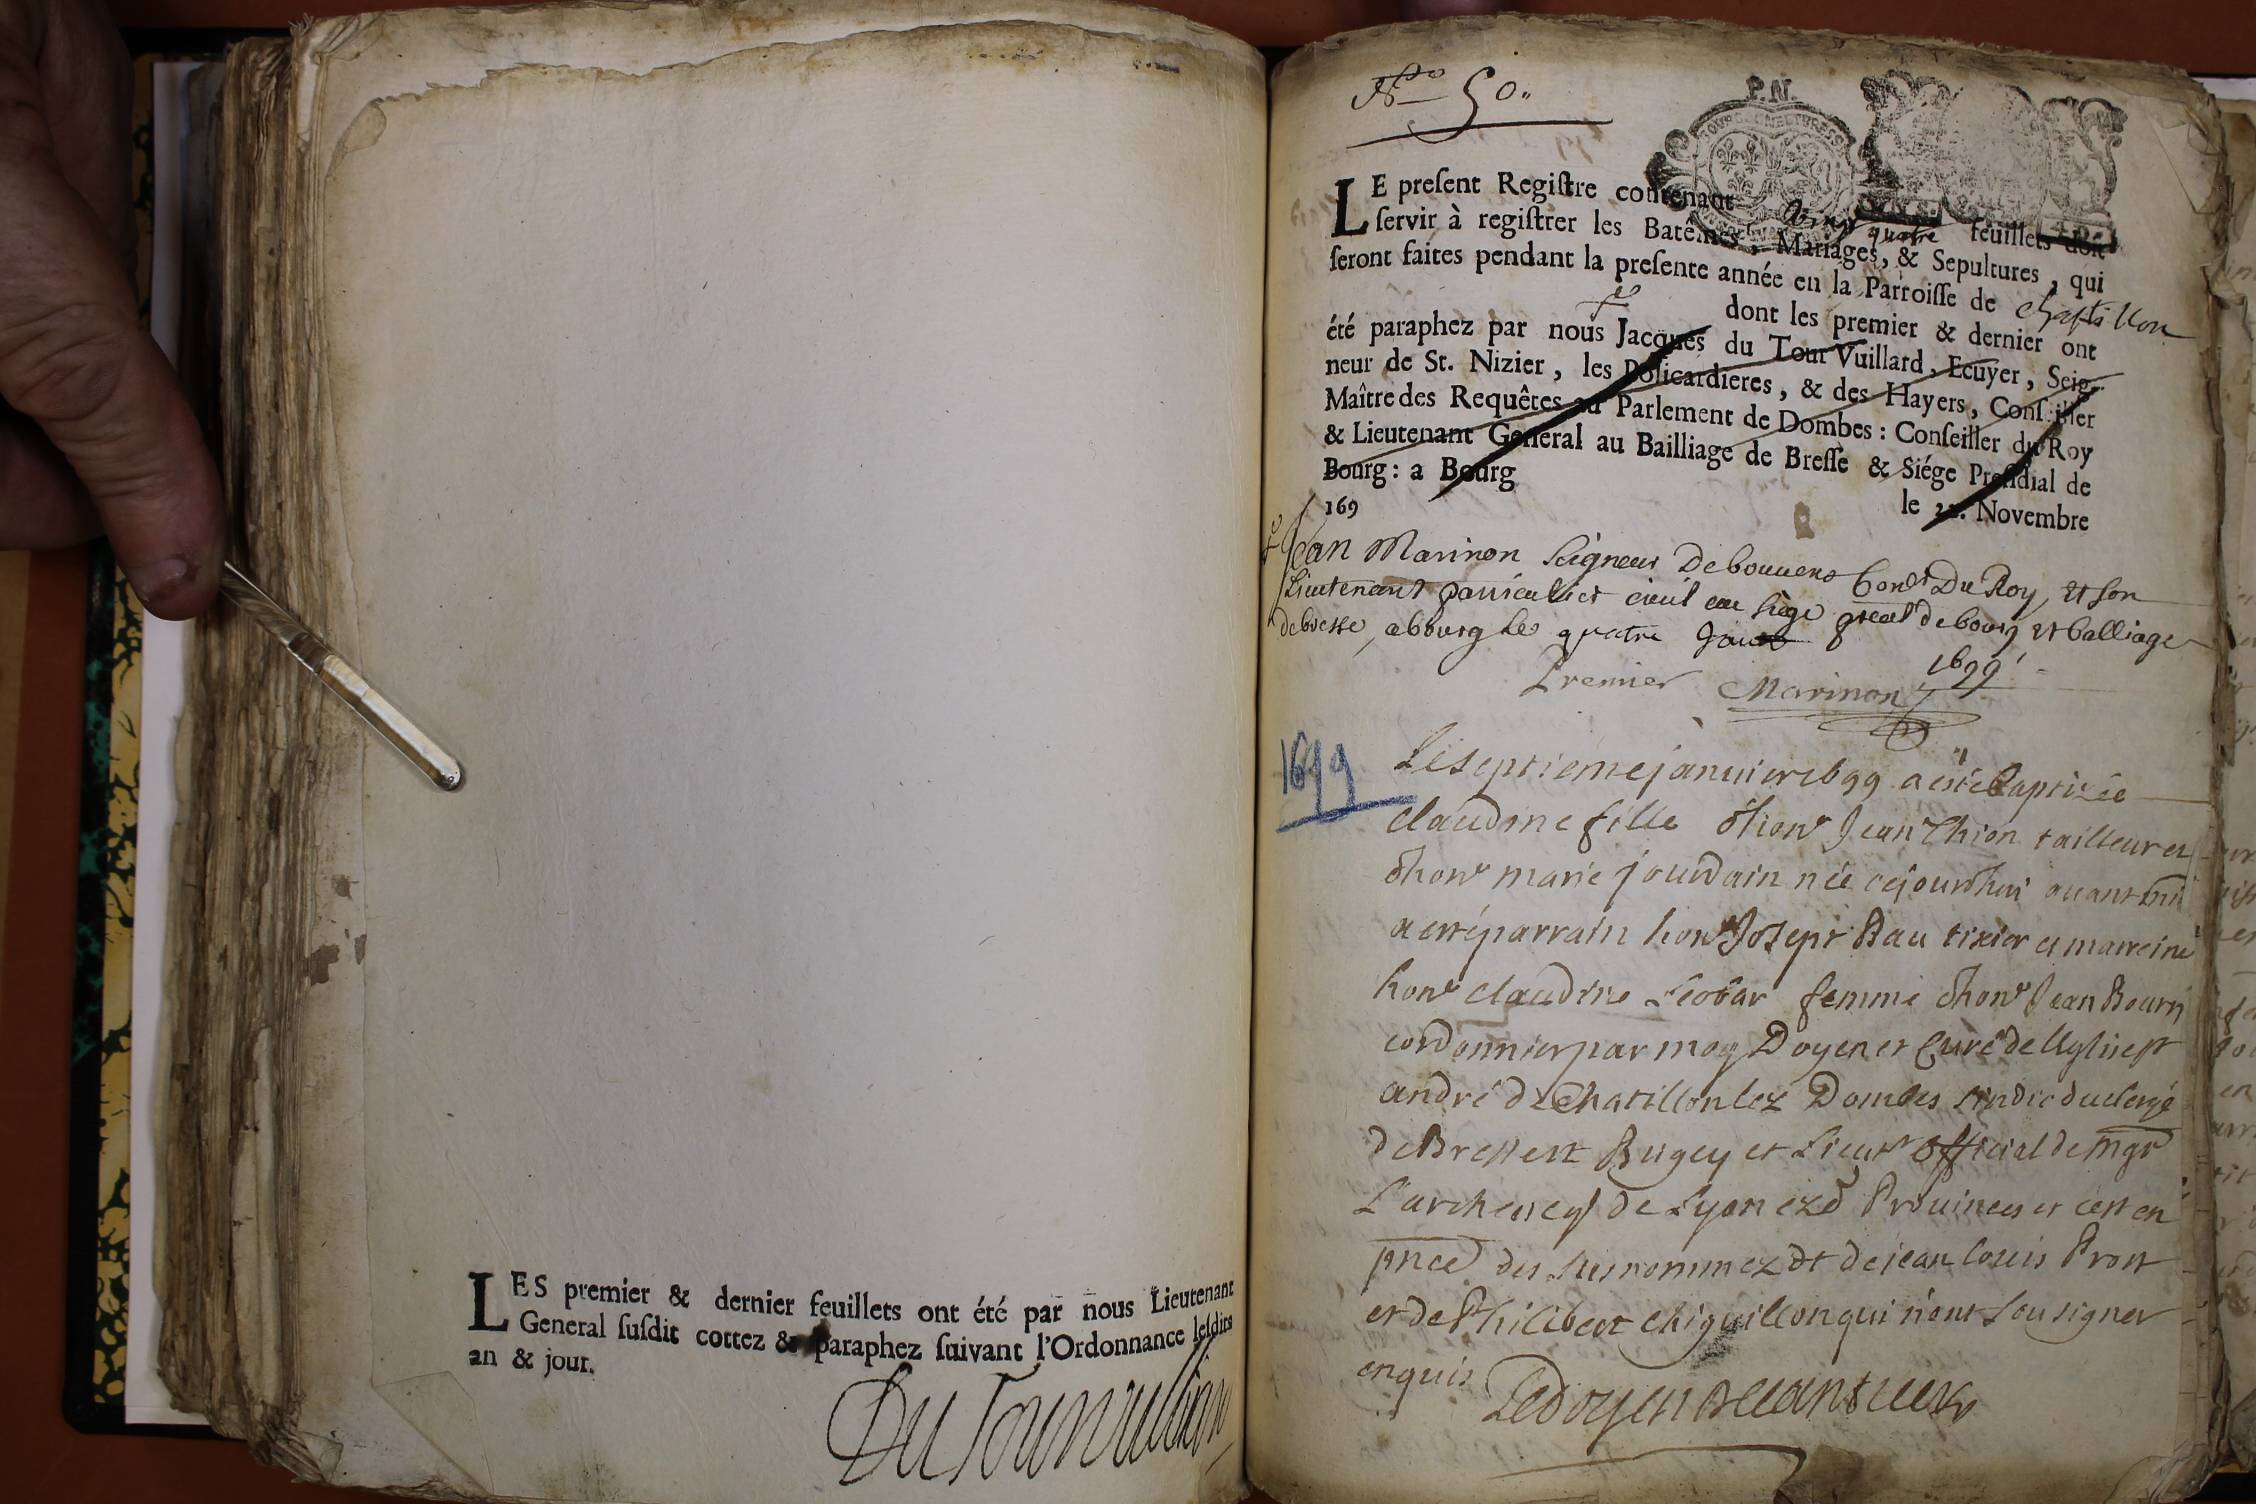 LES premier & dernier feuillets ont été par nous Lieutenant
General ſuſdit cottez & paraphez ſuivant l'Ordonnance leſdits
an & jour.
Du Tour Vuilliard
No 50..
P.N.
LE preſent Regiſtre contenant vingt quatre feuillets doit
ſervir à regiſtrer les Batêmes, Mariages, & Sepultures, qui
ſeront faites pendant la preſente année en la Parroiſſe de chastillon
dont les premier & dernier ont
été paraphez par nous Jacques du Tour Vuillard, Ecuyer, Seig-
neur de St. Nizier, les Policardieres, & des Hayers, Conſeiller
Maître des Requêtes au Parlement de Dombes: Conſeiller du Roy
& Lieutenant General au Bailliage de Breſſe & Siége Preſidial de
Bourg: a Bourg le 22. Novembre
169
Jean Marinon Seigneur De bouuens Coner Du Roy, et son
Lieutenant particulier ciuil au siege preal de bourg et balliage
de bresse, a bourg le quatre
1699
Premier Marinon
1699
Le septieme januier 1699 a esté baptisée
claudine fille d'hone Jean Thion tailleur et
d'hone marie jourdain née cejourd'hui auant
a esté parrain hone Joseph Bau tixier et marreine
hone claudine femme d'hone Jean
cordonnier par moy Doyen et Curé de l'Eglise st
andré de Chatillon lez Dombes sindic du clergé
de Bresse et Bugey et Lieut Official de mgr
L'archeuesq de Lyon ezd Prouinces et c'est en
pnce des susnommez et de jean louis Prost
et de Philibert chiquillon qui n'ont sou signer
enquis